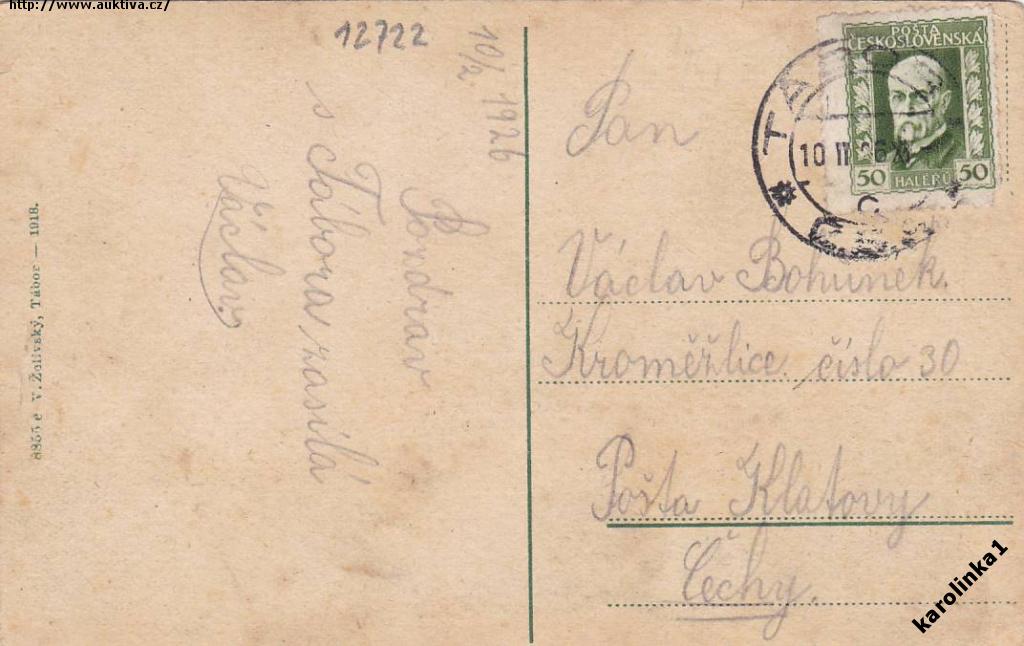 http://www.auktiva.cz/
12722
10/2 1926
Pozdrav
s Tábora zasílá
Václav.
8355 e V. Zdlivský, Tábor — 1918.
POŠTA
ČESKOSLOVENSKÁ
50 HALÉŘŮ 50
10 II 26
Pan
Václav Bohunek.
Kroměžlice číslo 30
Pošta Klatovy
Čechy.
karolinka1